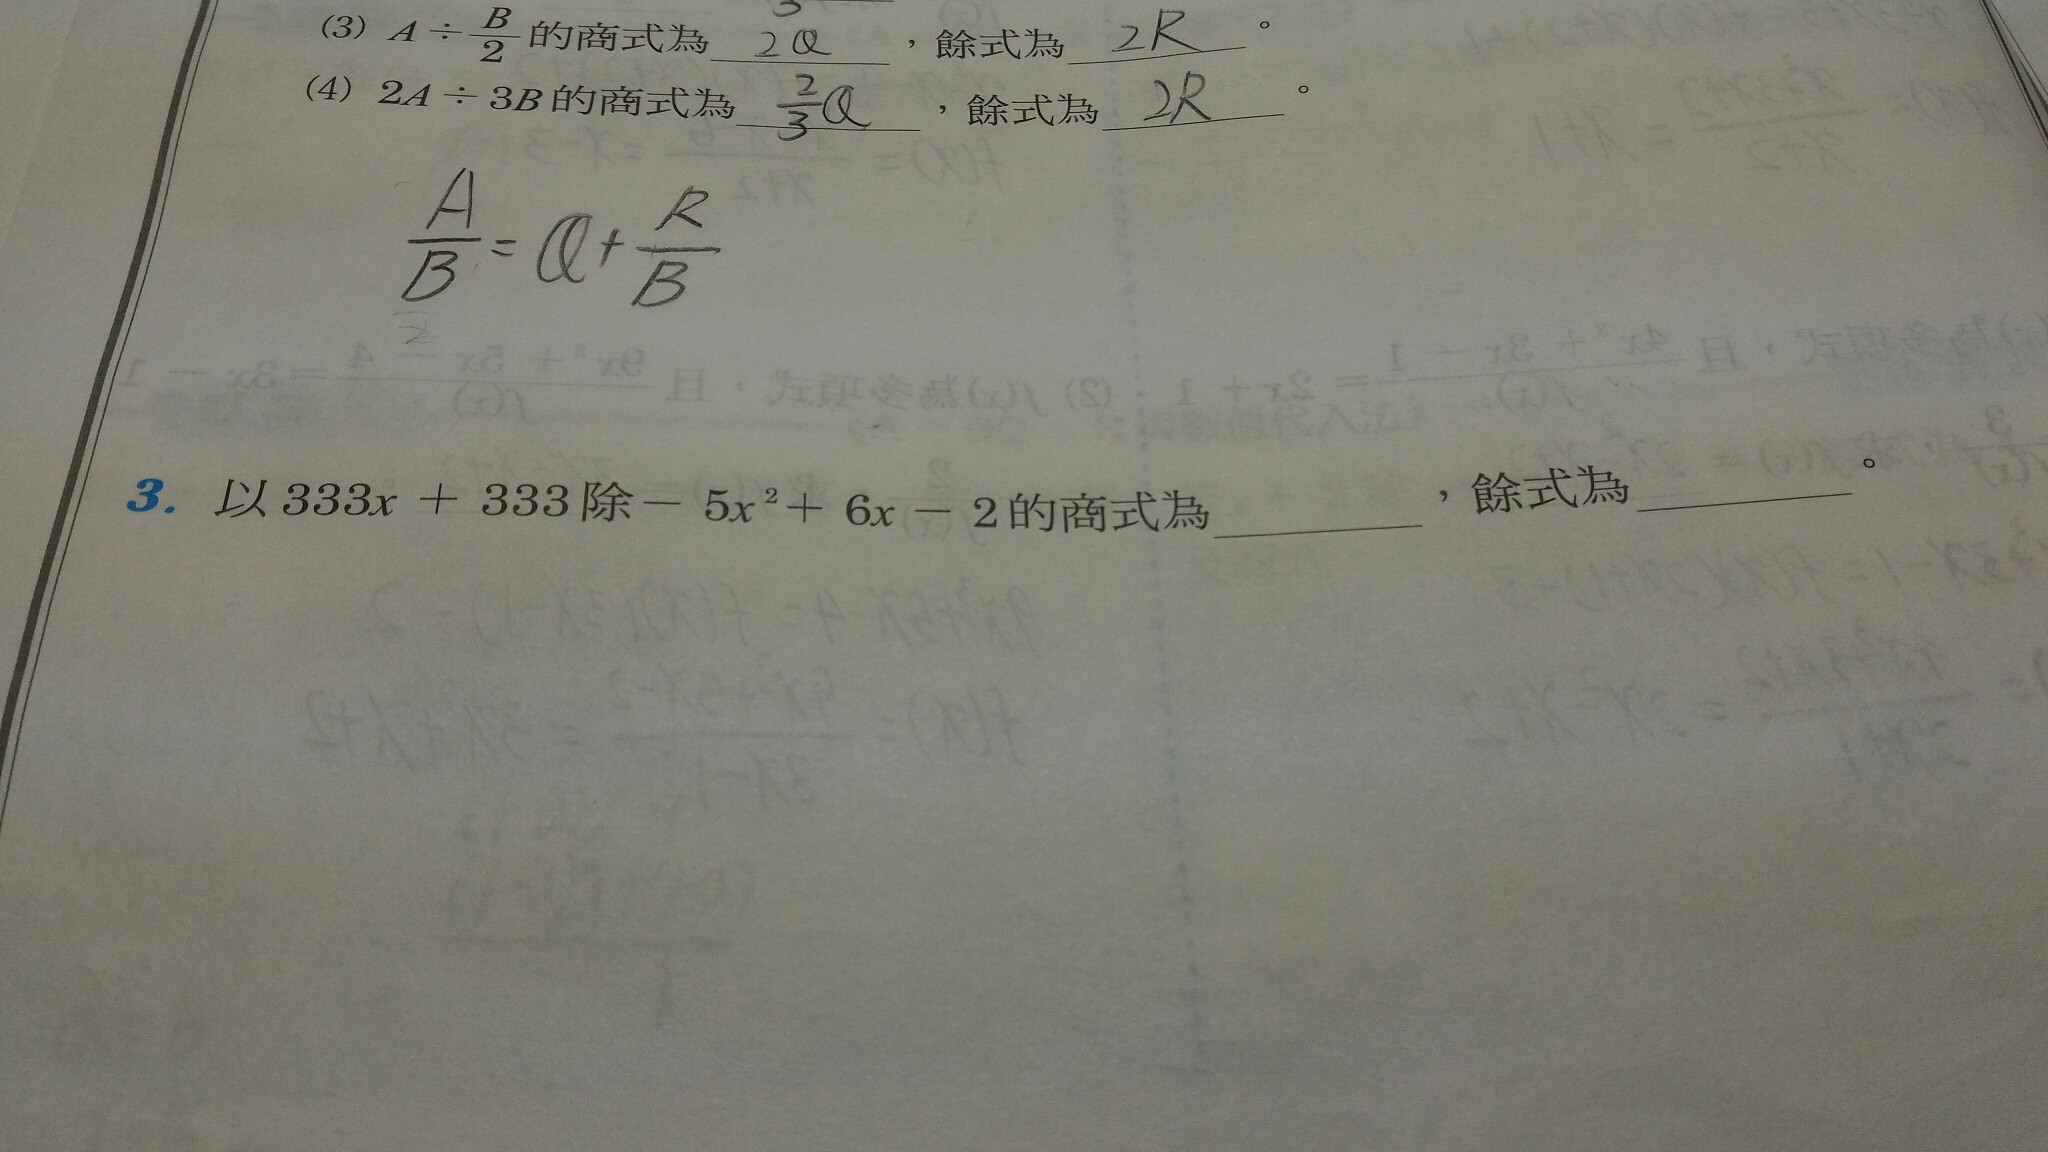 (3) A ÷ B/2 的商式為 2Q ，餘式為 2R 。
(4) 2A ÷ 3B 的商式為 2/3 Q ，餘式為 2R 。
A/B = Q + R/B
3. 以 333x + 333 除 − 5x² + 6x − 2 的商式為______，餘式為______。